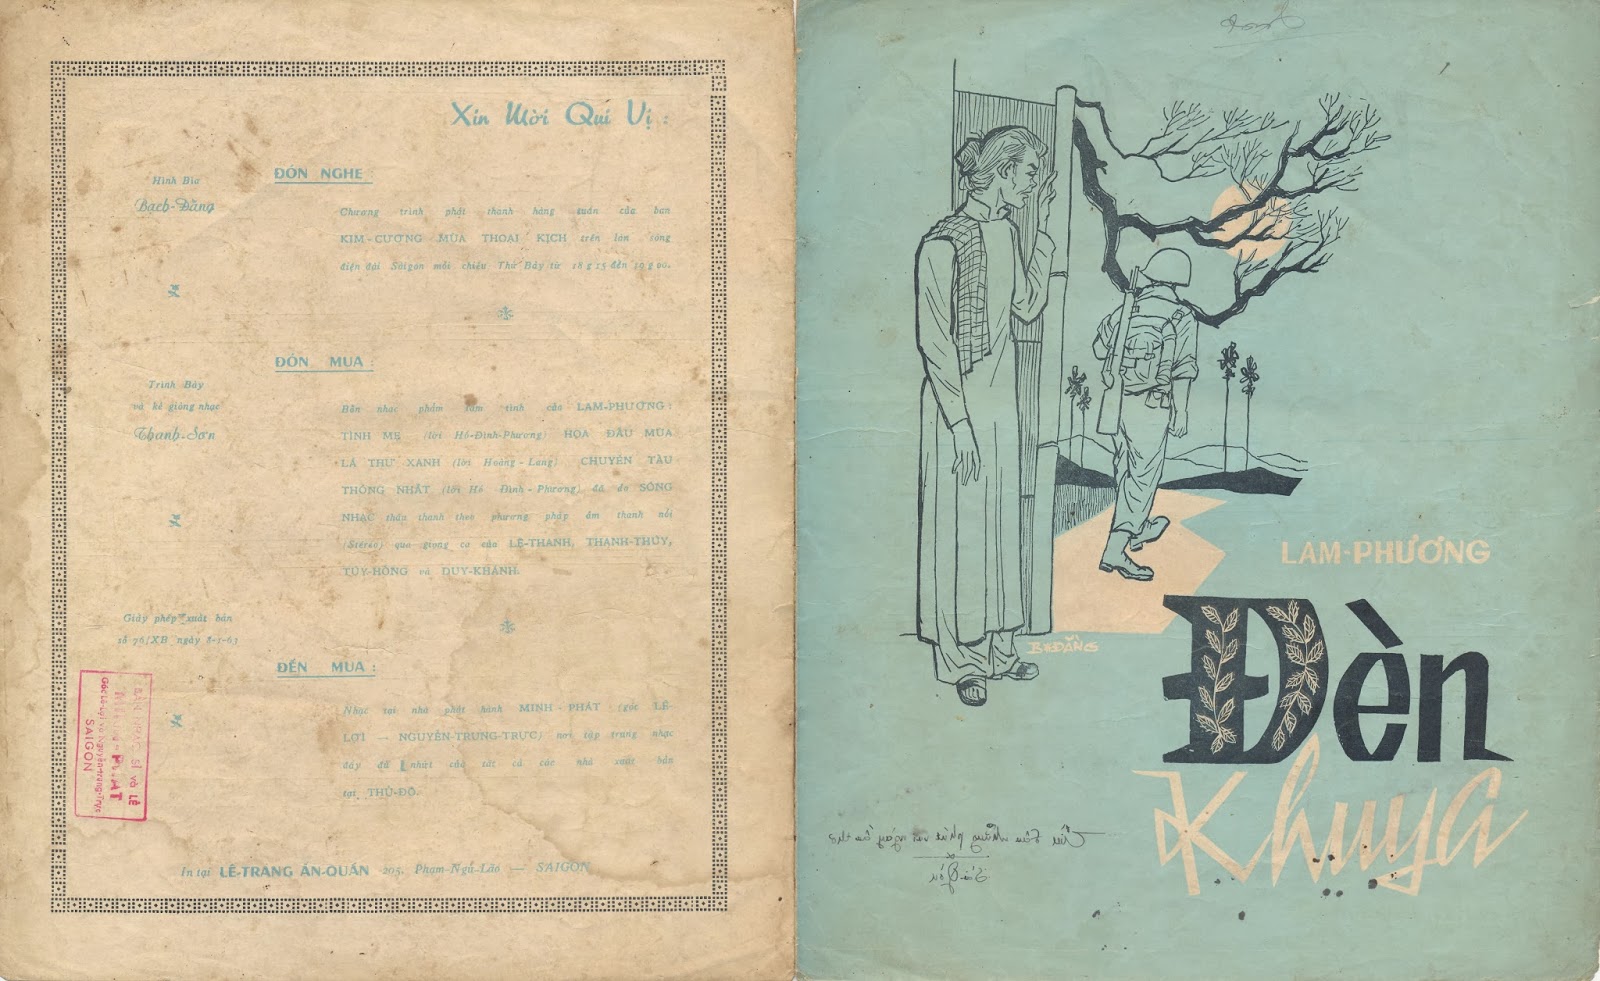 Xin Mời Quí Vị :
Hình Bìa
Bạch-Đằng
ĐÓN NGHE
Chương trình phát thanh hàng tuần của ban
KIM-CƯƠNG MÚA THOẠI KỊCH trên làn sóng
điện đài Sàigòn mỗi chiều Thứ Bảy từ 18 g 15 đến 19 g 00.
ĐÓN MUA :
Trình Bày
và kẻ giòng nhạc
Thanh-Sơn
Bản nhạc phẩm tâm tình của LAM-PHƯƠNG :
TÌNH MẸ (lời Hồ-Đình-Phương) HOA ĐẦU MÙA
LÁ THƯ XANH (lời Hoàng - Lang) CHUYẾN TÀU
THỐNG NHẤT (lời Hồ Đình - Phương) đã do SÓNG
NHẠC thâu thanh theo phương pháp âm thanh nổi
(Stéréo) qua giọng ca của LỆ-THANH, THANH-THÚY,
TÚY-HỒNG và DUY-KHÁNH.
Giấy phép xuất bản
số 76/XB ngày 8-1-63
ĐẾN MUA :
Nhạc tại nhà phát hành MINH - PHÁT (góc LÊ-
LỢI — NGUYỄN-TRUNG-TRỰC) nơi tập trung nhạc
đầy đủ nhứt của tất cả các nhà xuất bản
tại THỦ-ĐÔ.
In tại LÊ-TRANG ẤN-QUÁN 205, Phạm-Ngũ-Lão — SAIGON
SAIGON
B.ĐẰNG
LAM-PHƯƠNG
Đèn
Khuya